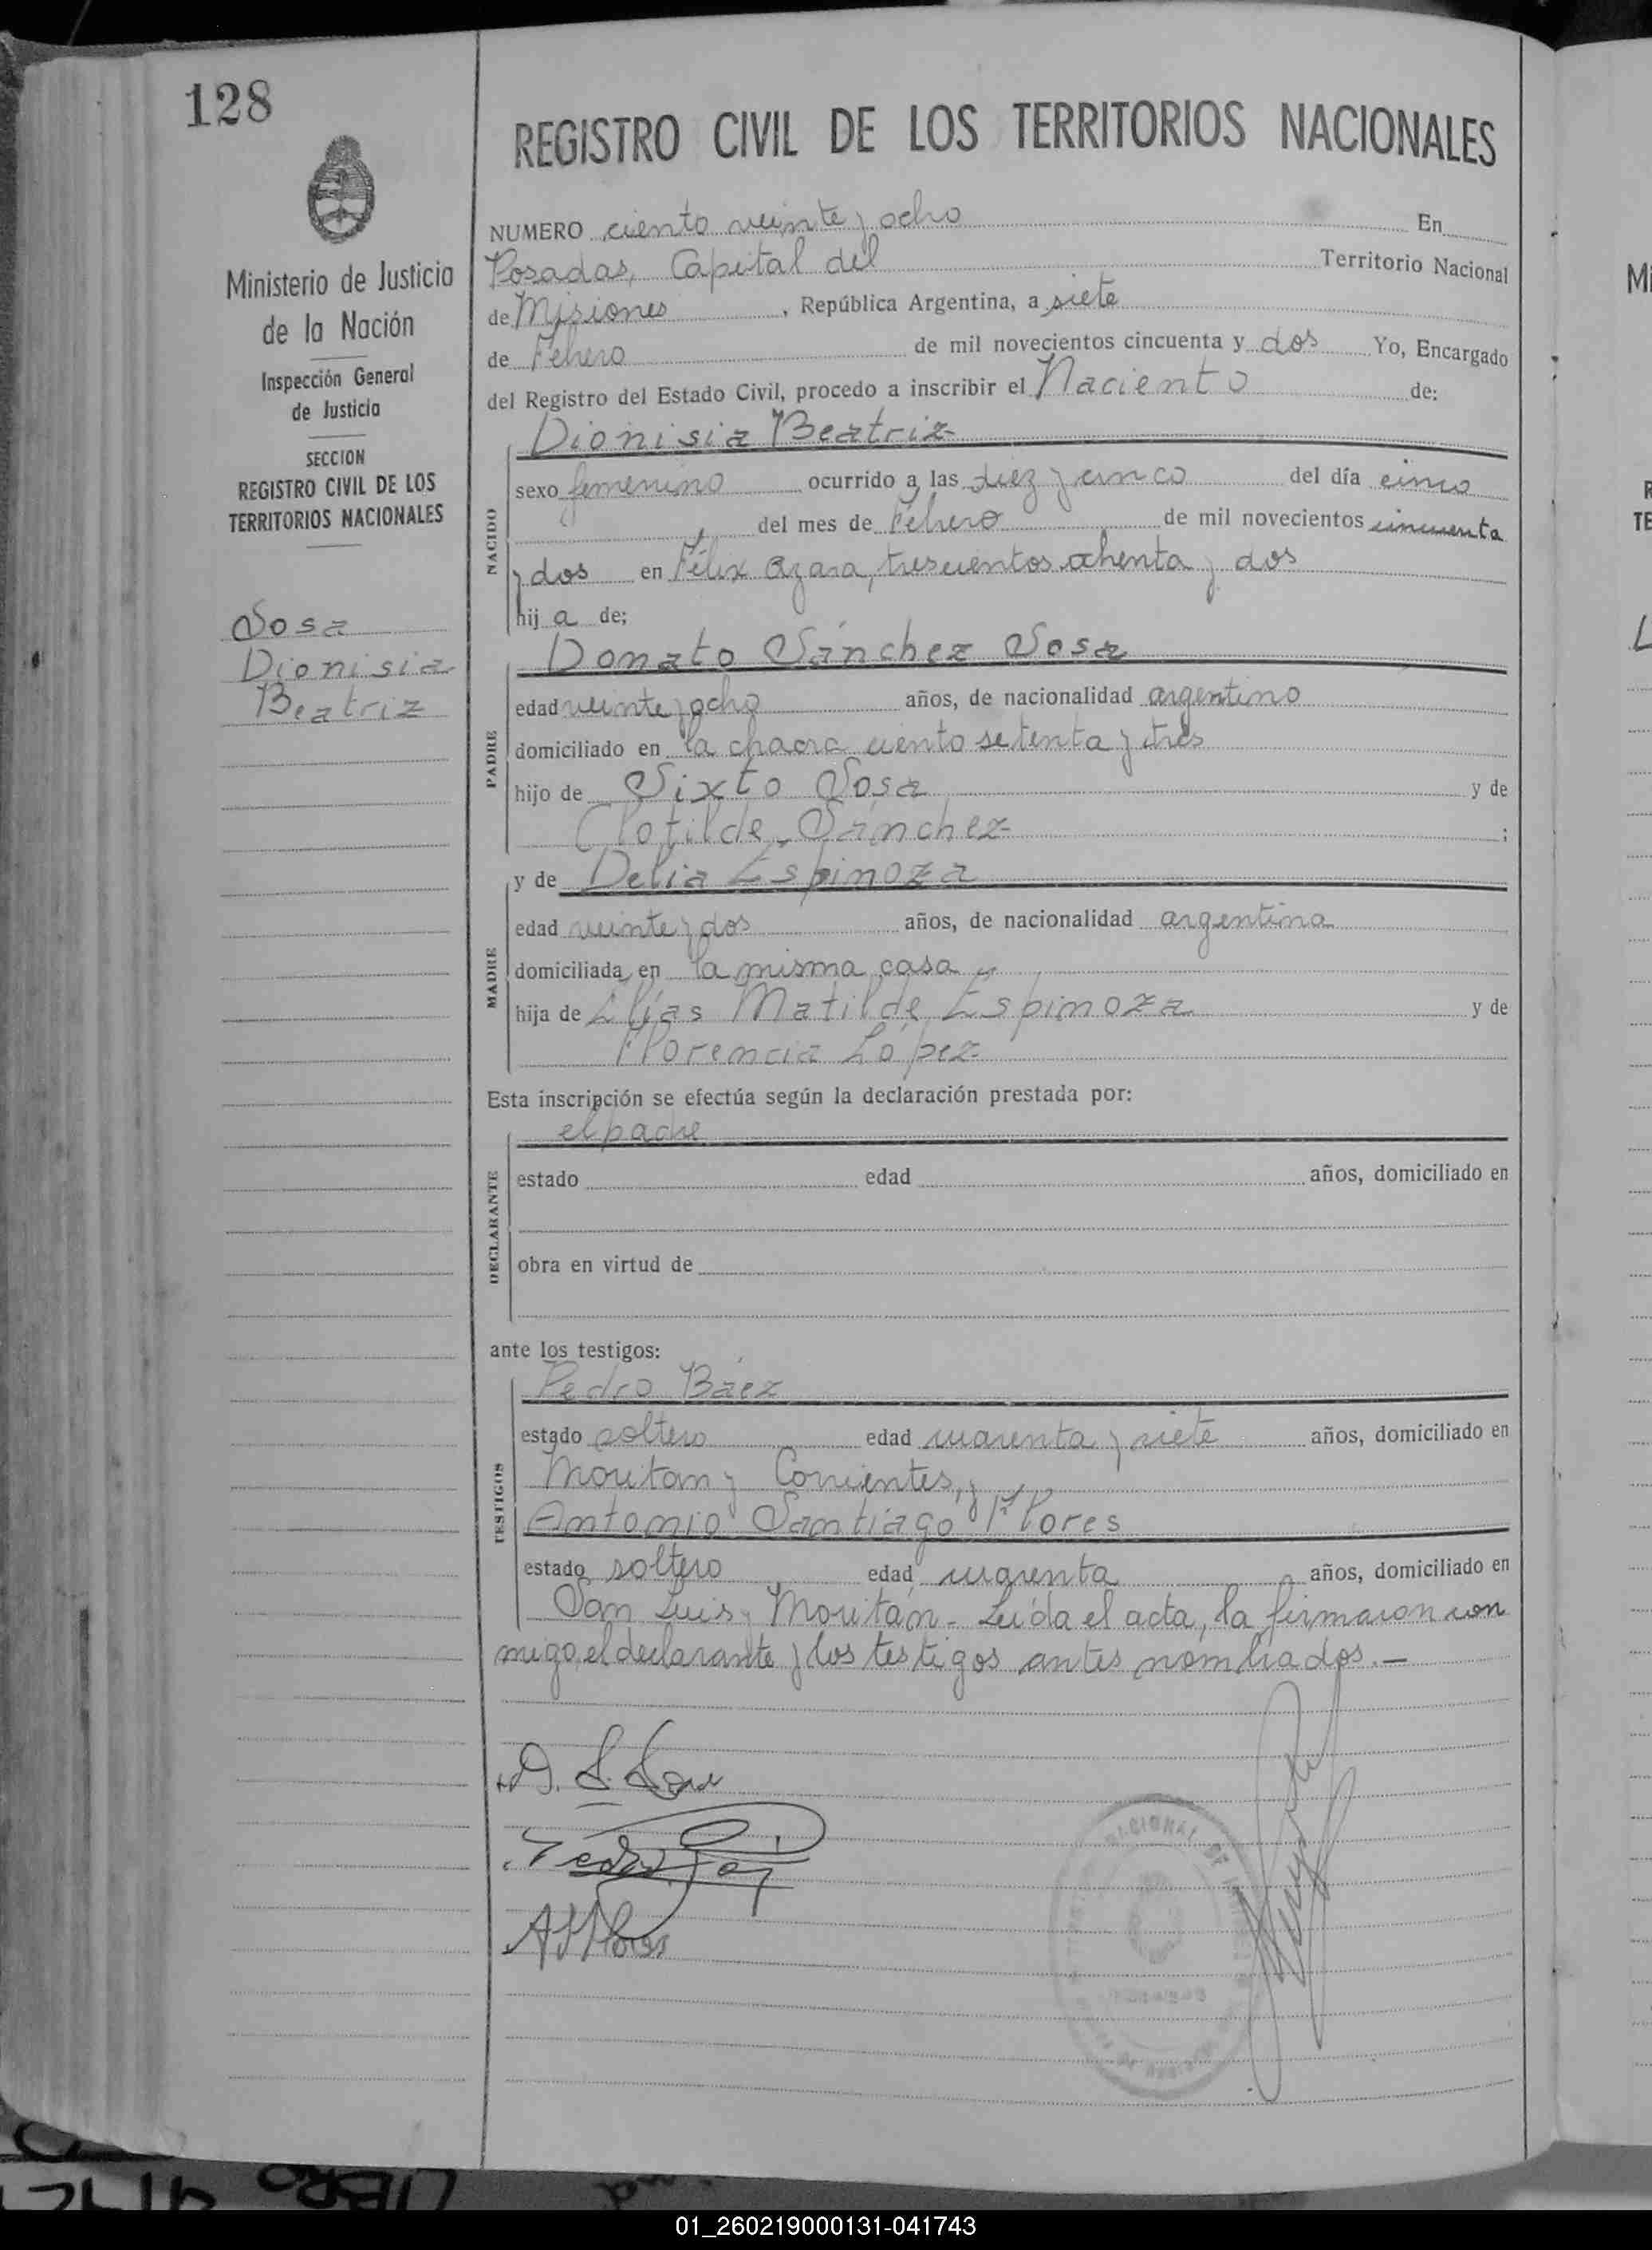 128
REGISTRO CIVIL DE LOS TERRITORIOS NACIONALES
Ministerio de Justicia
de la Nación
Inspección General
de Justicia
SECCION
REGISTRO CIVIL DE LOS
TERRITORIOS NACIONALES
Sosa
Dionisia
Beatriz
NUMERO ciento veinte y ocho En
Posadas, Capital del Territorio Nacional
de Misiones, República Argentina, a siete
de Febrero de mil novecientos cincuenta y dos Yo, Encargado
del Registro del Estado Civil, procedo a inscribir el Naciento de:
NACIDO
Dionisia Beatriz
sexo femenino ocurrido a las diez y cinco del día cinco
del mes de Febrero de mil novecientos cincuenta
y dos en Félix Azara, trescientos ochenta y dos
hij a de;
PADRE
Donato Sánchez Sosa
edad veinte y ocho años, de nacionalidad argentino
domiciliado en la chacra ciento setenta y tres
hijo de Sixto Sosa y de
Clotilde Sánchez ;
MADRE
y de Delia Espinoza
edad veinte y dos años, de nacionalidad argentina
domiciliada en la misma casa
hija de Elías Matilde Espinoza y de
Florencia López
Esta inscripción se efectúa según la declaración prestada por:
DECLARANTE
el padre
estado edad años, domiciliado en
obra en virtud de
ante los testigos:
TESTIGOS
Pedro Báez
estado soltero edad cuarenta y siete años, domiciliado en
Moritan y Corrientes, y
Antonio Santiago Flores
estado soltero edad cuarenta años, domiciliado en
San Luis y Moritán - Leída el acta, la firmaron con
migo, el declarante y los testigos antes nombrados. —
D. S. Sosa
Pedro
AS Flores
NACIONAL DE
01_260219000131-041743